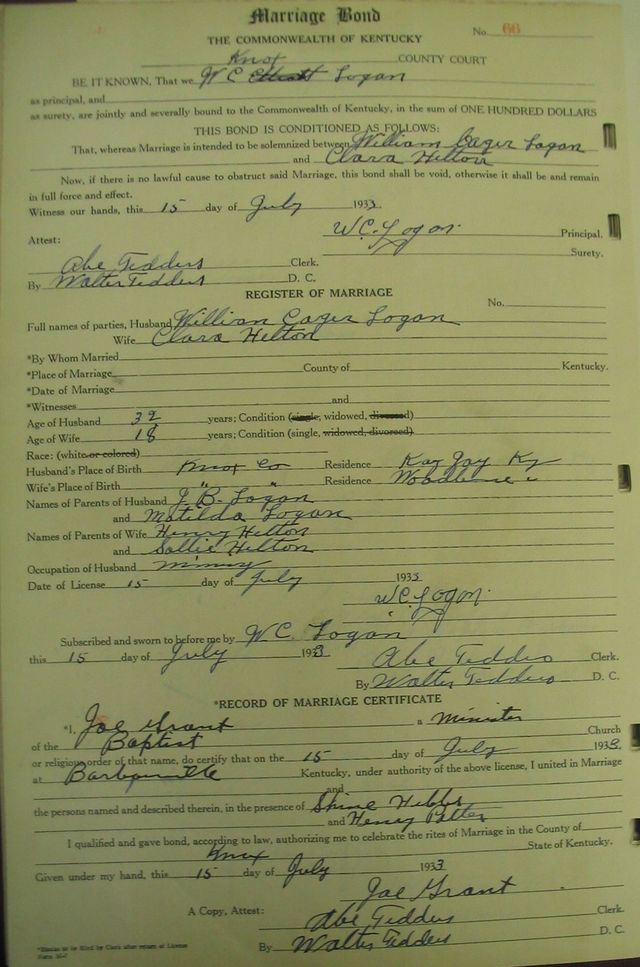 Marriage Bond
No. 66
THE COMMONWEALTH OF KENTUCKY
Knox COUNTY COURT
BE IT KNOWN, That we W C Logan
as principal, and
as surety, are jointly and severally bound to the Commonwealth of Kentucky, in the sum of ONE HUNDRED DOLLARS
THIS BOND IS CONDITIONED AS FOLLOWS:
That, whereas Marriage is intended to be solemnized between William Cager Logan
and Clara Helton
Now, if there is no lawful cause to obstruct said Marriage, this bond shall be void, otherwise it shall be and remain
in full force and effect.
Witness our hands, this 15 day of July 1933
W.C. Logan Principal.
Attest: Surety.
Abe Tedders Clerk.
By Walter Tedders D. C.
REGISTER OF MARRIAGE
No.
Full names of parties, Husband William Cager Logan
Wife Clara Helton
*By Whom Married
*Place of Marriage County of Kentucky.
*Date of Marriage
*Witnesses and
Age of Husband 32 years; Condition (single, widowed, divorced)
Age of Wife 18 years; Condition (single, widowed, divorced)
Race: (white or colored)
Husband's Place of Birth Knox Co Residence Kay Jay Ky
Wife's Place of Birth " " Residence Woodbine "
Names of Parents of Husband J. B. Logan
and Matilda Logan
Names of Parents of Wife Henry Helton
and Sallie Helton
Occupation of Husband mining
Date of License 15 day of July 1933
W.C. Logan
Subscribed and sworn to before me by W.C. Logan
this 15 day of July 1933
Abe Tedders Clerk.
By Walter Tedders D. C.
*RECORD OF MARRIAGE CERTIFICATE
*I, Joe Grant a minister
of the Baptist Church
or religious order of that name, do certify that on the 15 day of July 1933.
at Barbourville Kentucky, under authority of the above license, I united in Marriage
and
the persons named and described therein, in the presence of Shine Hibbs
and Henry
I qualified and gave bond, according to law, authorizing me to celebrate the rites of Marriage in the County of
Knox State of Kentucky.
Given under my hand, this 15 day of July 1933
Joe Grant
A Copy, Attest: Abe Tedders Clerk.
By Walter Tedders D. C.
*Blanks to be filled by Clerk after return of License